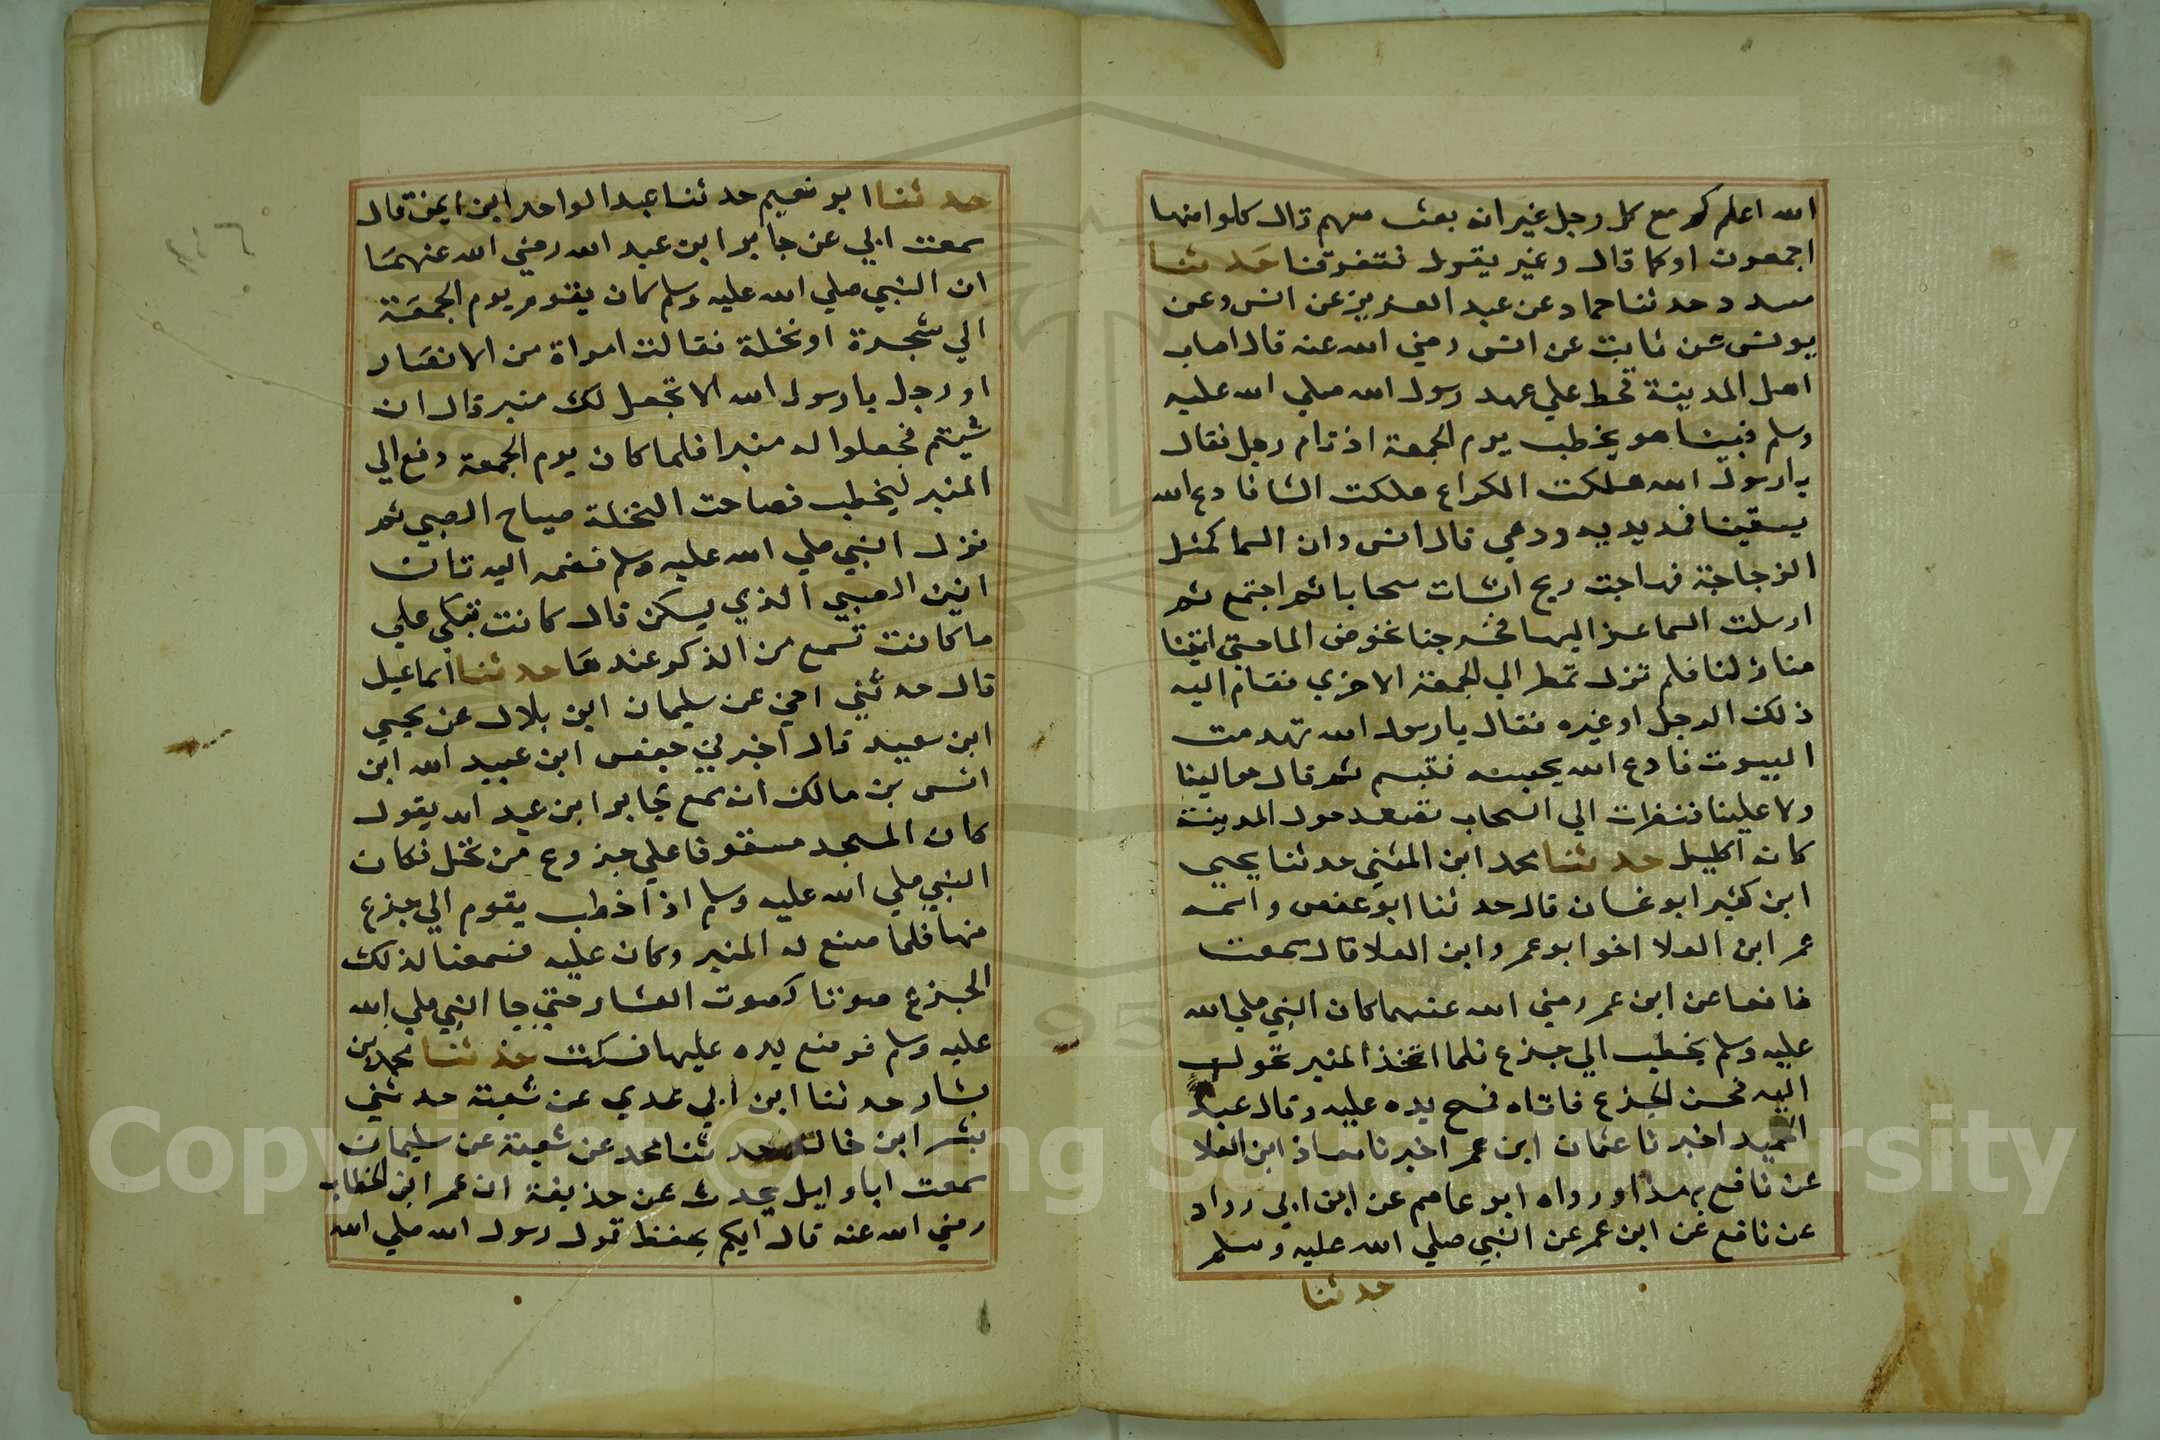 الله اعلم كم مع كل رجل غير انه بعث معهم قال كلوا منها
اجمعون او كما قال وغير يقول فتفرقنا حدثنا
مسدد حدثنا حماد عن عبد العزيز عن انس وعن
يونس عن ثابت عن انس رضي الله عنه قال اصاب
اهل المدينة قحط علي عهد رسول الله صلي الله عليه
وسلم فبينا هو يخطب يوم الجمعة اذ قام رجل فقال
يارسول الله هلكت الكراع هلكت الشا فادع الله
يسقينا فمد يديه ودعي قال انس وان السما كمثل
الزجاجة فهاجت ريح انشات سحابا ثم اجتمع ثم
ارسلت السما عزاليها فخرجنا نخوض الما حتي اتينا
منازلنا فلم تزل تمطر الي الجمعة الاخري فقام اليه
ذلك الرجل او غيره فقال يارسول الله تهدمت
البيوت فادع الله يحبسه فتبسم ثم قال حوالينا
ولا علينا فنظرت الي السحاب تصدع حول المدينة
كانه اكليل حدثنا محمد ابن المثني حدثنا يحيي
ابن كثير ابو غسان قال حدثنا ابو حفص واسمه
عمر ابن العلا اخو ابو عمرو ابن العلا قال سمعت
نافعا عن ابن عمر رضي الله عنهما كان النبي صلي الله
عليه وسلم يخطب الي جذع فلما اتخذ المنبر تحول
اليه فحن الجذع فاتاه فمسح يده عليه وقال عبد
الحميد اخبرنا عثمان ابن عمر اخبرنا معاذ ابن العلا
عن نافع بهذا ورواه ابو عاصم عن ابن ابي رواد
عن نافع عن ابن عمر عن النبي صلي الله عليه وسلم
حدثنا
حدثنا ابو نعيم حدثنا عبد الواحد ابن ايمن قال
سمعت ابي عن جابر ابن عبد الله رضي الله عنهما
ان النبي صلي الله عليه وسلم كان يقوم يوم الجمعة
الي شجرة او نخلة فقالت امراة من الانصار
او رجل يارسول الله الا نجعل لك منبر قال ان
شيتم فجعلوا له منبرا فلما كان يوم الجمعة دفع الي
المنبر ليخطب فصاحت النخلة صياح الصبي ثم
نزل النبي صلي الله عليه وسلم فضمه اليه تان
انين الصبي الذي يسكن قال كانت تبكي علي
ما كانت تسمع من الذكر عندها حدثنا اسماعيل
قال حدثني اخي عن سليمان ابن بلال عن يحيي
ابن سعيد قال اخبرني حفص ابن عبيد الله ابن
انس بن مالك انه سمع جابر ابن عبد الله يقول
كان المسجد مسقوفا علي جزوع من نخل فكان
النبي صلي الله عليه وسلم اذا خطب يقوم الي جذع
منها فلما صنع له المنبر وكان عليه فسمعنا لذلك
الجذع صوتا كصوت العشار حتي جا النبي صلي الله
عليه وسلم فوضع يده عليها فسكنت حدثنا محمد بن
بشار حدثنا ابن ابي عدي عن شعبة حدثني
بشر ابن خالد حدثنا محمد عن شعبة عن سليمان
سمعت ابا وايل يحدث عن حذيفة ان عمر ابن الخطاب
رضي الله عنه قال ايكم يحفظ قول رسول الله صلي الله
Copyright © King Saud University